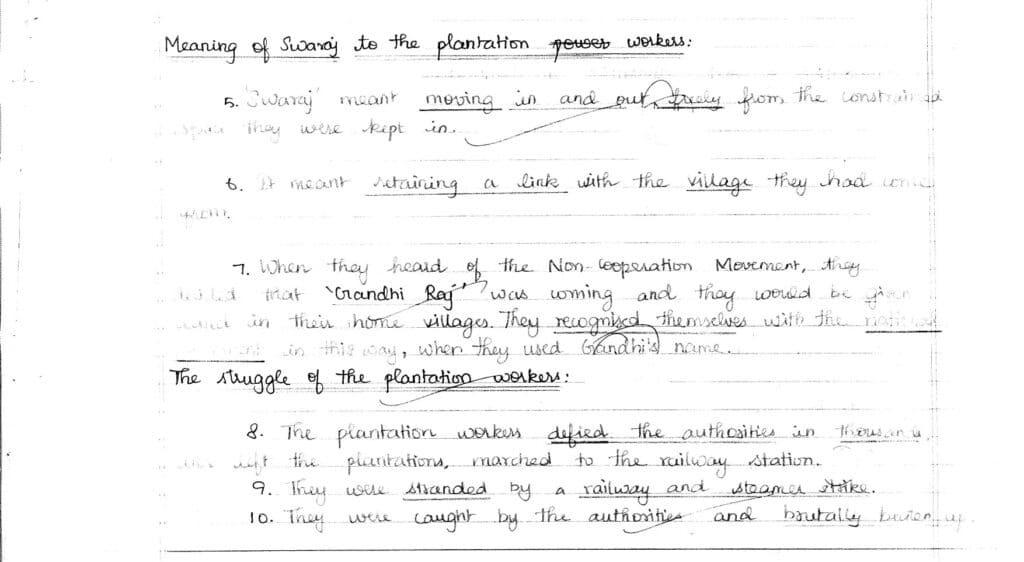 Meaning of Swaraj to the plantation power workers:
5. 'Swaraj' meant moving in and out freely from the constrained
space they were kept in.
6. It meant retaining a link with the village they had come
from.
7. When they heard of the Non-Cooperation Movement, they
that 'Gandhi Raj' was coming and they would be given
land in their home villages. They recognised themselves with the national
in this way, when they used Gandhi's name.
The struggle of the plantation workers:
8. The plantation workers defied the authorities in thousands,
left the plantations, marched to the railway station.
9. They were stranded by a railway and steamer strike.
10. They were caught by the authorities and brutally beaten up.